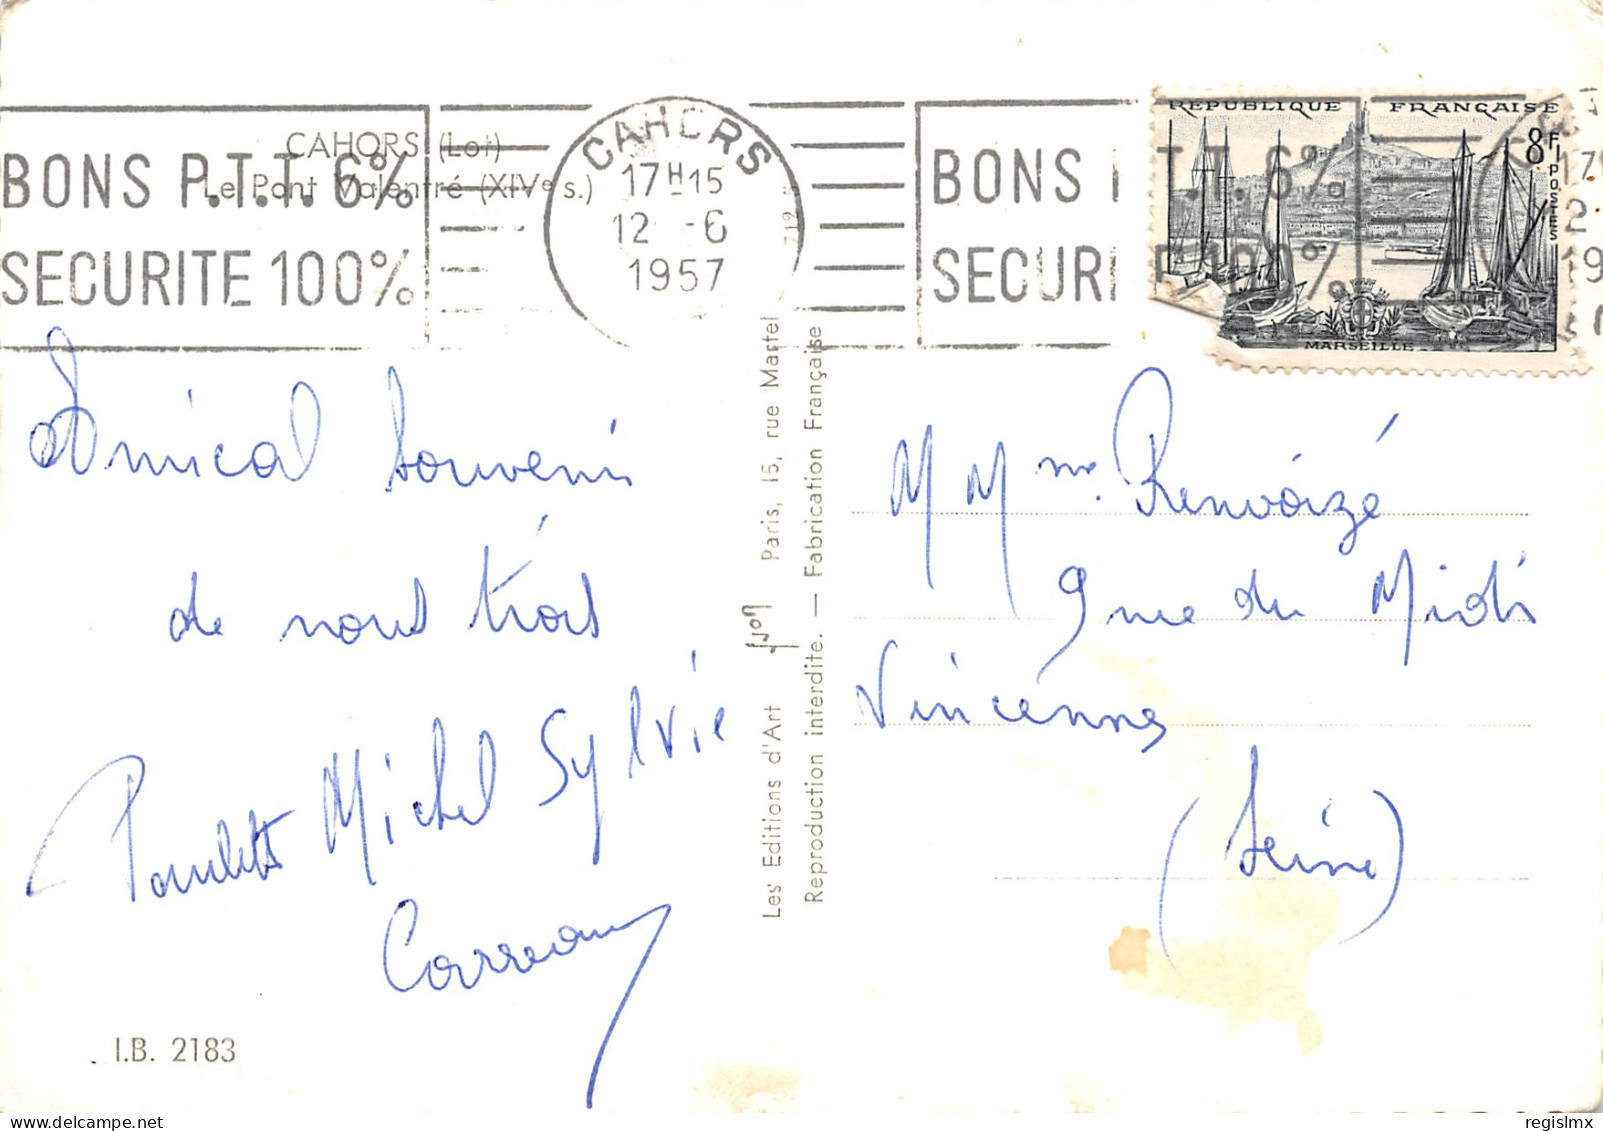 CAHORS (Lot)
Le Pont Valentré (XIVe s.)
BONS P.T.T. 6%
SECURITE 100%
CAHORS
17H15
12 -6
1957
BONS P.T.T. 6%
SECURI 100%
REPUBLIQUE FRANÇAISE
8F
POSTES
MARSEILLE
Amical souvenir
de nous trois
Paulette Michel Sylvie
I.B. 2183
Les Editions d'Art YVON Paris, 15, rue Martel
Reproduction interdite. — Fabrication Française
M Mme. Renvoizé
9 rue du Midi
Vincennes
(Seine)
regislmx